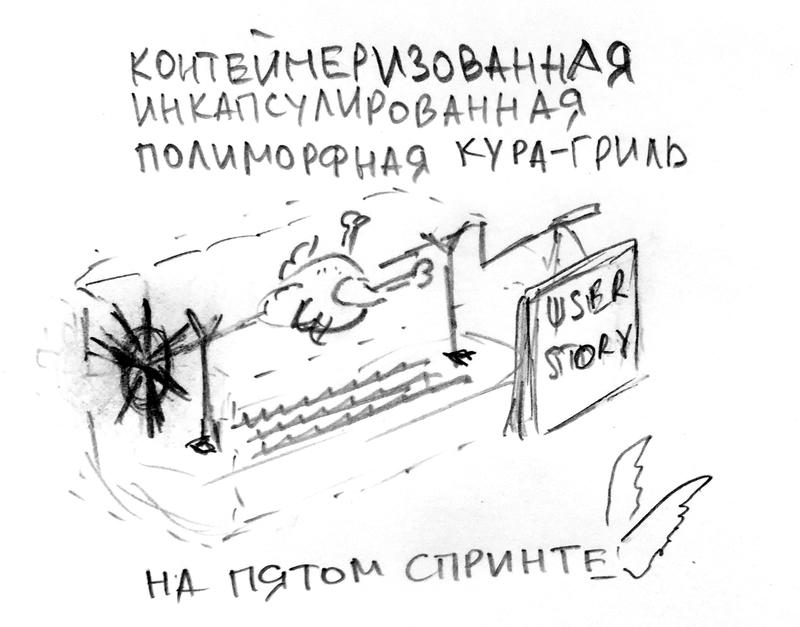 КОНТЕЙНЕРИЗОВАННАЯ
ИНКАПСУЛИРОВАННАЯ
ПОЛИМОРФНАЯ КУРА-ГРИЛЬ
USER
STORY
НА ПЯТОМ СПРИНТЕ!